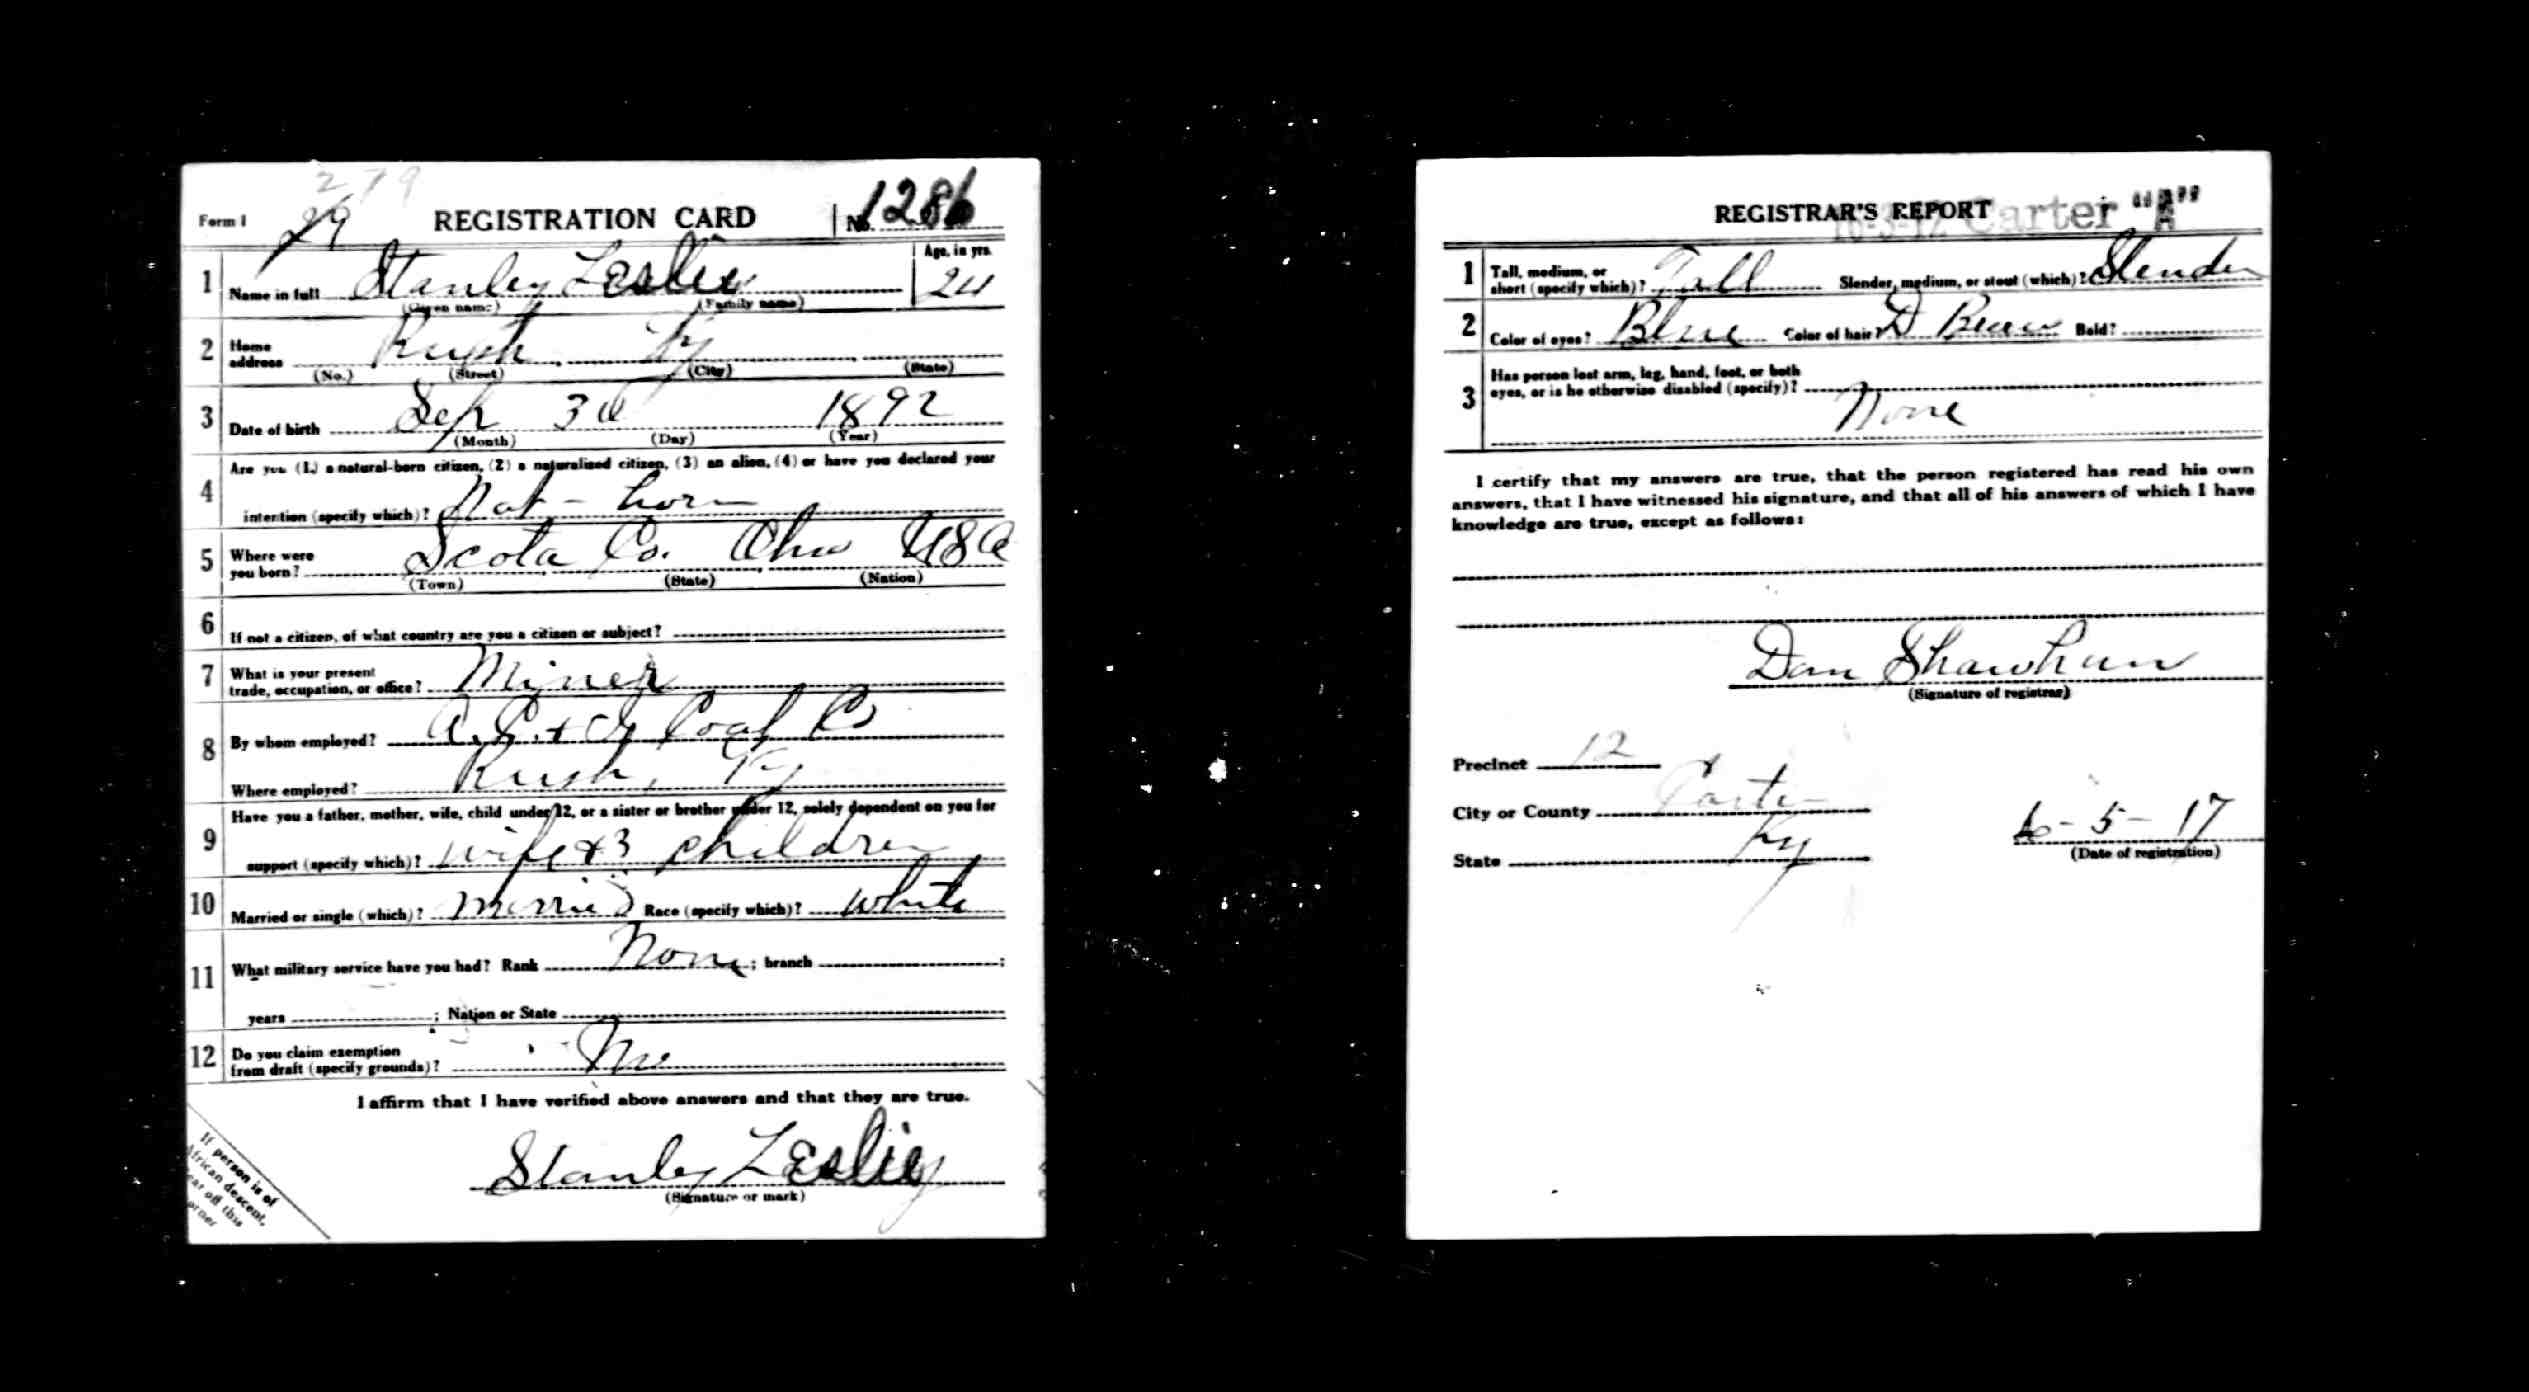 279
Form 1 29 REGISTRATION CARD No. 1286
1 Name in full Stanley Leslie Age, in yrs. 24
(Given name) (Family name)
2 Home address Rush Ky
(No.) (Street) (City) (State)
3 Date of birth Sep 30 1892
(Month) (Day) (Year)
4 Are you (1) a natural-born citizen, (2) a naturalized citizen, (3) an alien, (4) or have you declared your
intention (specify which)? Nat-born
5 Where were you born? Scota Co. Ohio USA
(Town) (State) (Nation)
6 If not a citizen, of what country are you a citizen or subject?
7 What is your present
trade, occupation, or office? Miner
8 By whom employed? Coal Co
Where employed? Rush, Ky
9 Have you a father, mother, wife, child under 12, or a sister or brother under 12, solely dependent on you for
support (specify which)? Wife & 3 children
10 Married or single (which)? Married Race (specify which)? White
11 What military service have you had? Rank None; branch ;
years ; Nation or State
12 Do you claim exemption
from draft (specify grounds)? No
I affirm that I have verified above answers and that they are true.
Stanley Leslie
(Signature or mark)
If person is of
African descent,
tear off this
corner
REGISTRAR'S REPORT 16-3-12 Carter "A"
1 Tall, medium, or
short (specify which)? Tall Slender, medium, or stout (which)? Slender
2 Color of eyes? Blue Color of hair? D Brown Bald?
3 Has person lost arm, leg, hand, foot, or both
eyes, or is he otherwise disabled (specify)?
None
I certify that my answers are true, that the person registered has read his own
answers, that I have witnessed his signature, and that all of his answers of which I have
knowledge are true, except as follows:
Dan Shawhan
(Signature of registrar)
Precinct 12
City or County Carter
State Ky
6-5-17
(Date of registration)